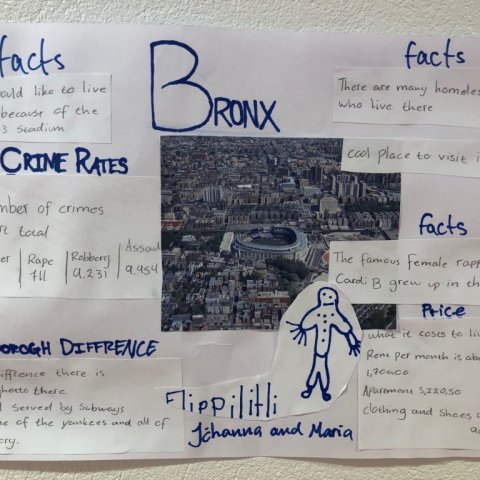 facts
ould like to live
because of the
s stadium
CRIME RATES
mber of crimes
rt total
er | Rape | Robbery | Assau
711 | 4.231 | 9,454
OROGH DIFFRENCE
iffrence there is
ghetto there
d served by Subways
me of the yankees and all of
ory.
BRONX
Flippilitli
Jóhanna and Maria
facts
There are many homeles
who live there
cool place to visit i
facts
The famous female rapp
Cardi B grew up in th
Price
what it costs to li
Rent per month is abo
Apartment 5,220,50
clothing and shoes